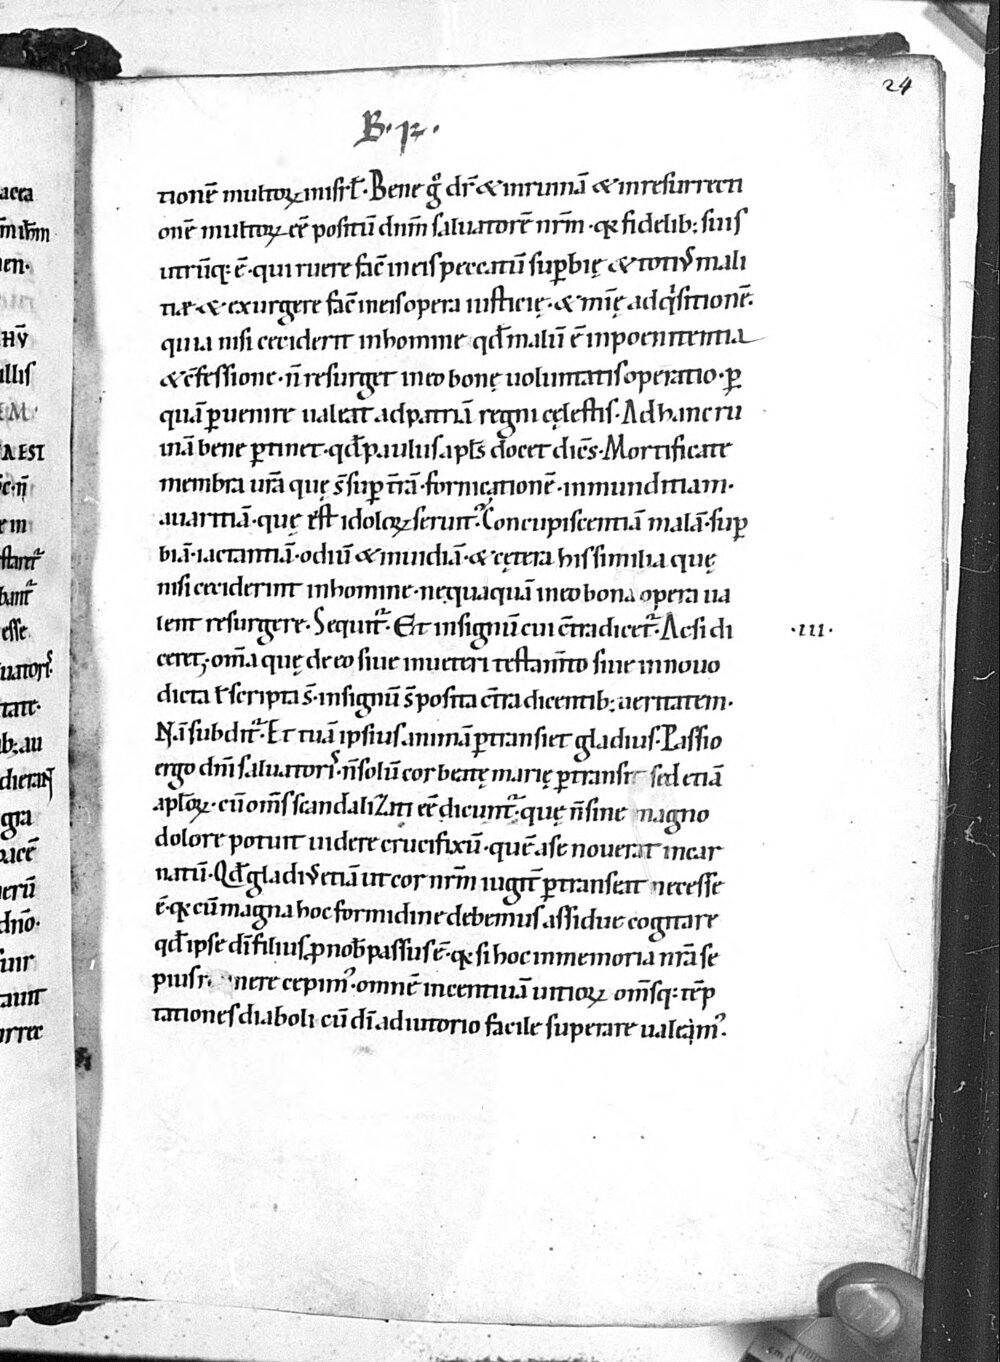 24
B. 12.
tionē multoꝝ in isrł. Bene gͦ dr̄ & in ruinā & in resurrecti
onē multoꝝ cē positū dnm̄ saluatorē nrm̄. qꝛ fidelib; suis
utrūq; ē. qui ruere facͭ in eis peccatū supbię & totiꝰ mali
tiæ. & exurgere facͭ in eis opera iusticię. & mīę adqͥsitionē.
quia nisi ceciderit in homine qd̄ malū ē in poenitentia
& c̄fessione. n̄ resurget in eo bonę uoluntatis operatio. ꝑ
quā ꝑuenire ualeat ad patriā regni cęlestis. Ad hanc ru
inā bene ꝑtinet. qd̄ paulus apl̄s docet dicēs. Mortificate
membra urā quę s̄ sup t̄rā. fornicationē. inmunditiam.
auaritiā. quę ēst idoloꝝ seruitꝰ. Concupiscentiā malā. sup
biā. iactantiā. odiū & inuidiā. & cętera his similia quę
nisi ceciderint in homine. nequaquā in eo bona opera ua
lent resurgere. Sequitͬ. Et in signū cui c̄tradicetͬ. Ac si di
.III.
ceret; om̄a quę de eo siue in ueteri testam̄to siue in nouo
dicta ł scripta s̄. in signū s̄ posita c̄tra dicentib; ueritatem.
Nā subditͬ. Et tuā ipsius animā ꝑtransiet gladius. Passio
ergo dnī saluatoris. n̄ solū cor beatę marię ꝑtransit sed etiā
aploꝝ. cū om̄s scandalizati cē dicuntͬ. quę n̄ sine magno
dolore potuit uidere crucifixū. quē a se nouerat incar
natū. Qd̄ gladiꝰ etiā ut cor nrm̄ iugitͭ ꝑtranseat necesse
ē. qꝛ cū magna hoc formidine debemus assidue cogitare
qd̄ ipse dī filius ꝓ nob̄ passus ē. qꝛ si hoc in memoria nrā se
pius cepimꝰ. omnē incentiuā uitioꝝ om̄sq; tēp
tationes diaboli cū dī adiutorio facile superare ualeamꝰ.